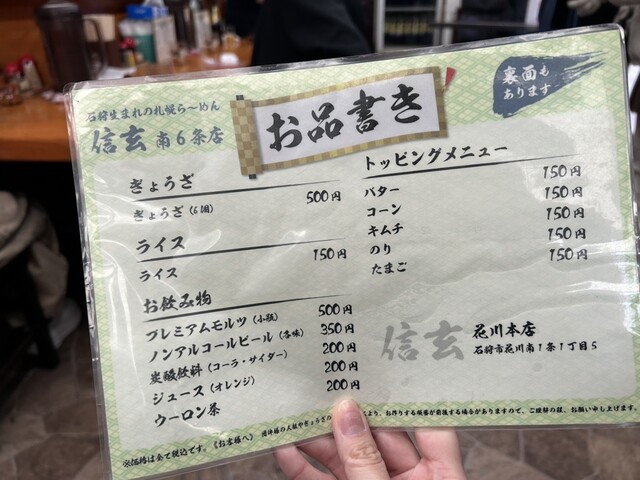 石狩生まれの札幌ら〜めん
信玄 南6条店
お品書き
裏面も
あります
ぎょうざ
ぎょうざ (6個) 500円
ライス
ライス 150円
お飲み物
プレミアムモルツ (小瓶) 500円
ノンアルコールビール (各味) 350円
炭酸飲料 (コーラ・サイダー) 200円
ジュース (オレンジ) 200円
ウーロン茶 200円
トッピングメニュー
バター 150円
コーン 150円
キムチ 150円
のり 150円
たまご 150円
信玄 花川本店
石狩市花川南1条1丁目5
※価格は全て税込です。《お客様へ》 により、お作りする順番が前後する場合がありますので、ご理解の程、お願い申し上げます。